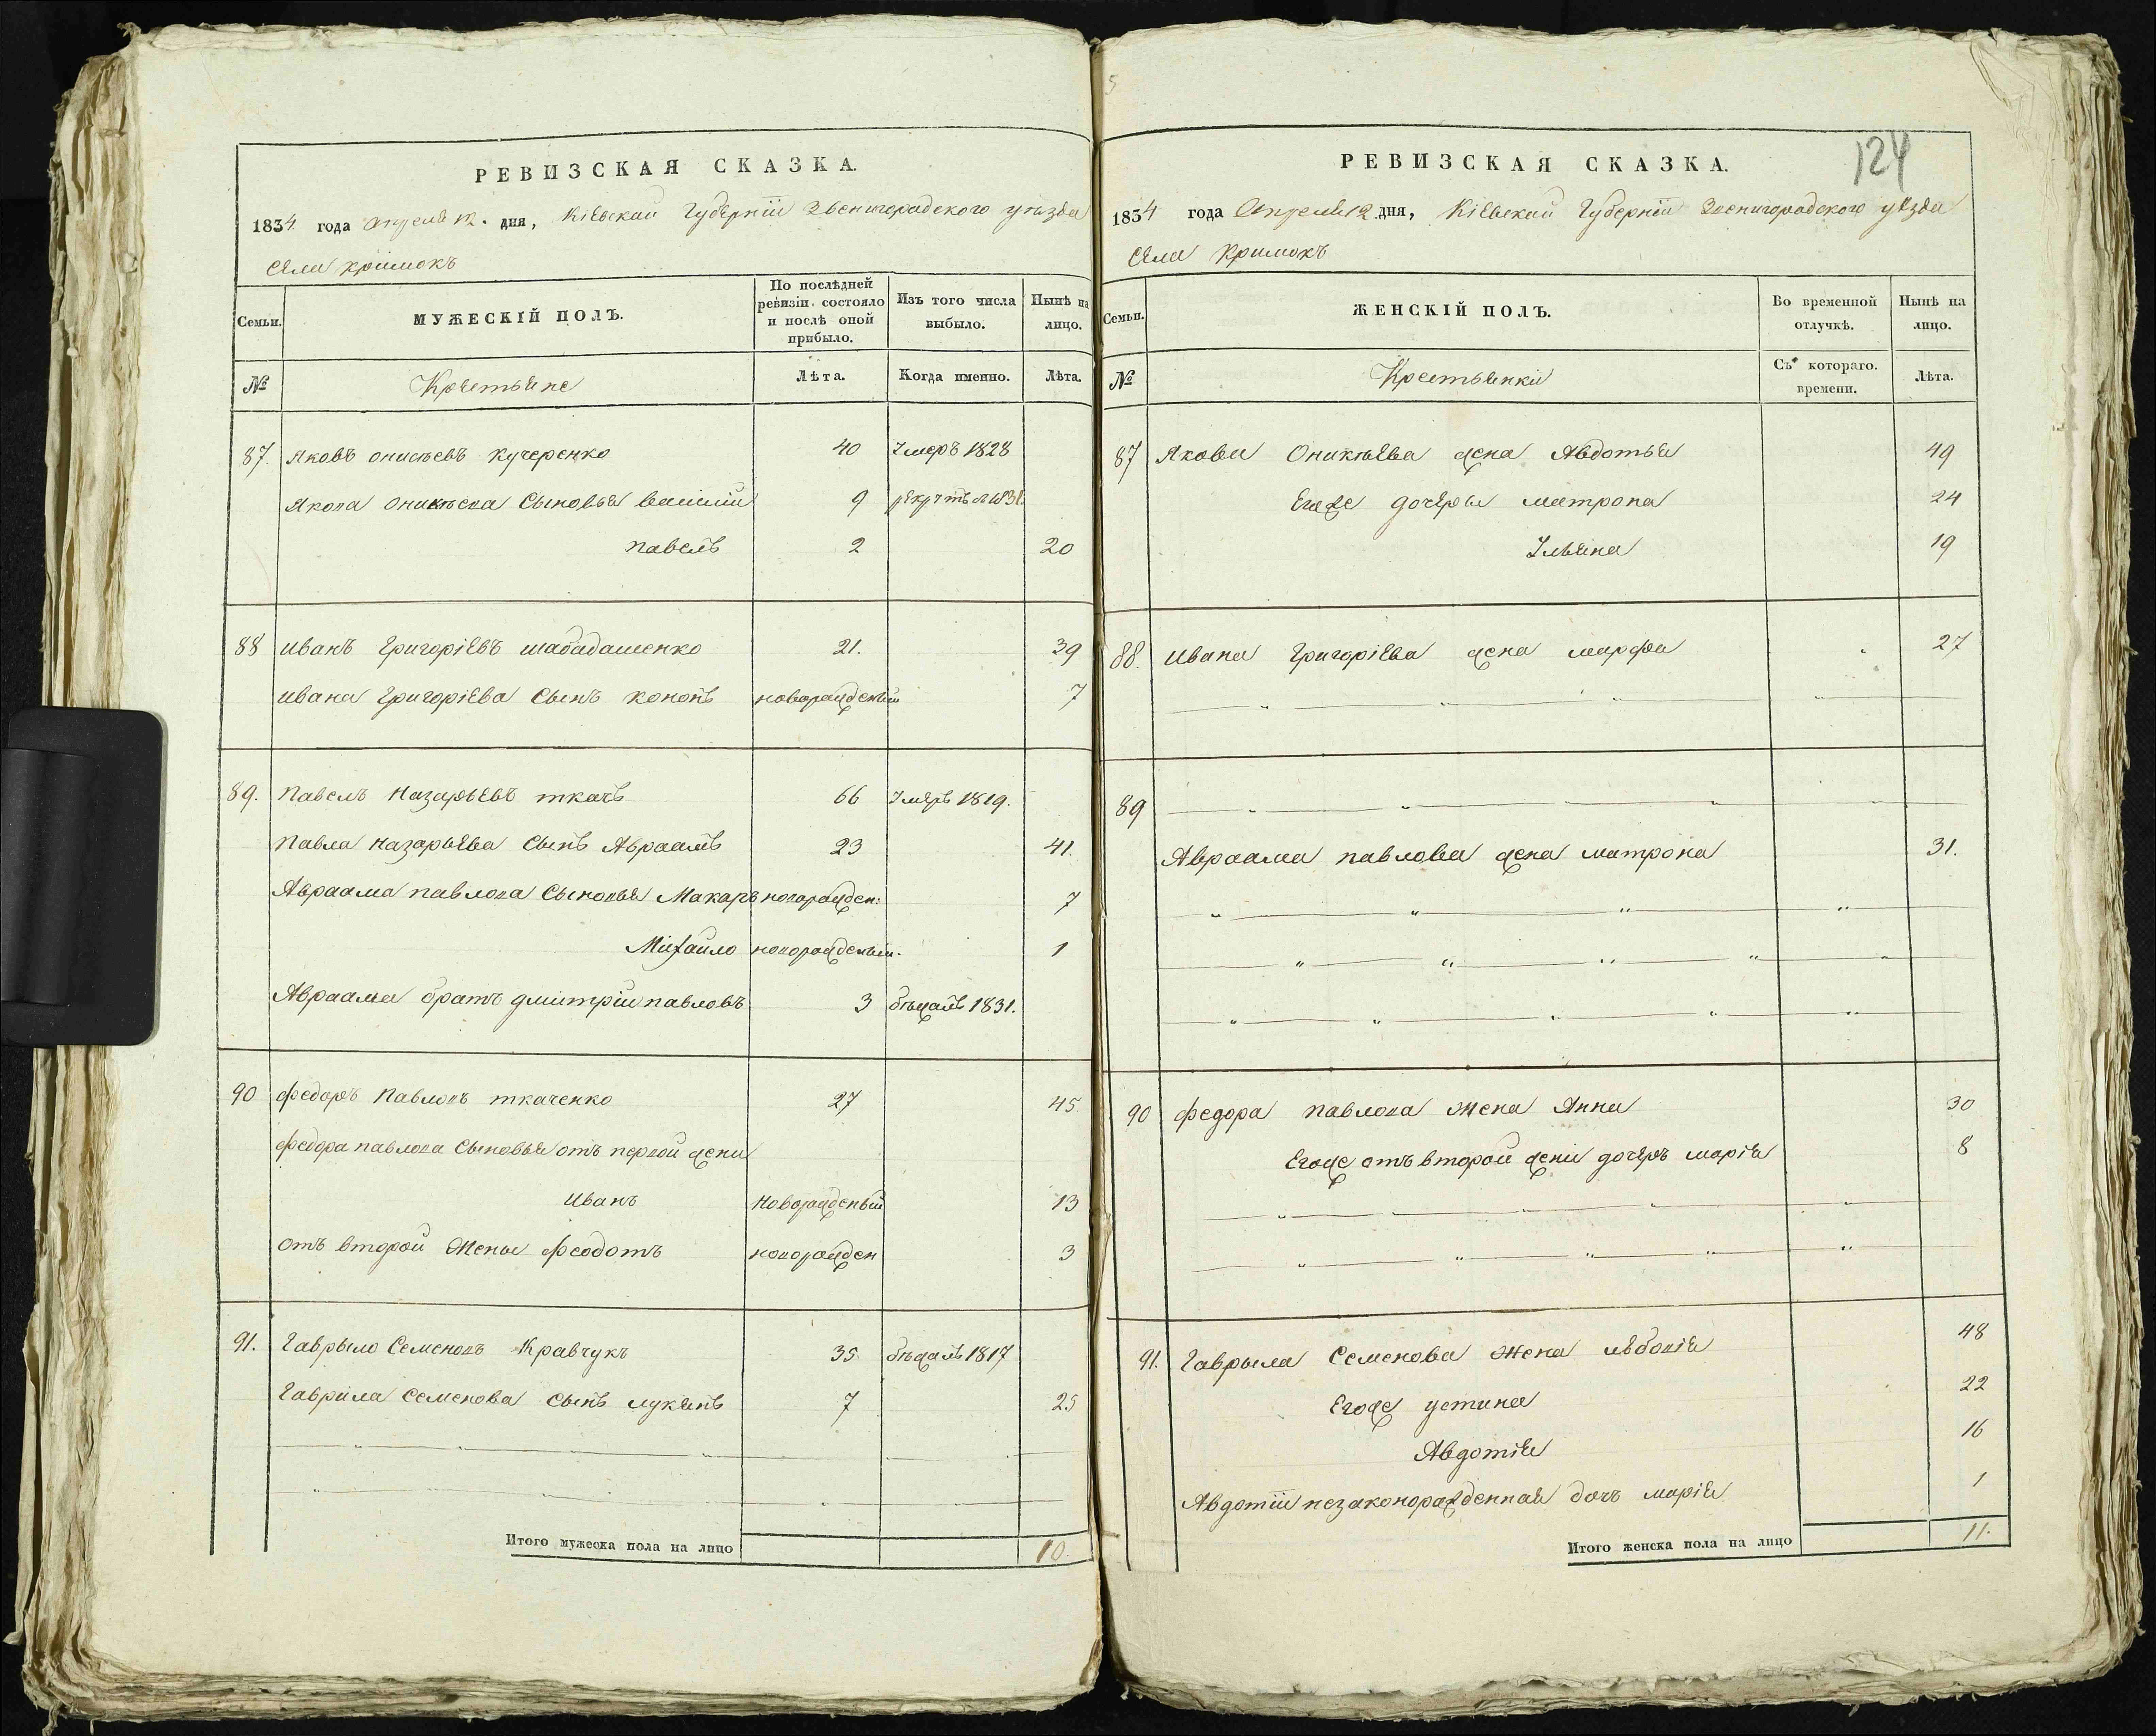 РЕВИЗСКАЯ СКАЗКА.
1834 года Апреля 12. дня, Кіевской Губерніи Звенигородского уѣзда
села Кримокъ
Семьи.
МУЖЕСКІЙ ПОЛЪ.
По послѣдней ревизіи состояло и послѣ оной прибыло.
Изъ того числа выбыло.
Нынѣ на лицо.
№
Крестьяне
Лѣта.
Когда именно.
Лѣта.
87. Яковъ Оникѣевъ Кучеренко 40 Умеръ 1828
Якова Оникѣева сыновья Василій 9 рекрутъ в 1831.
Павелъ 2 20
88 Иванъ Григоріевъ Шабадашенко 21. 39
Ивана Григоріева сынъ Кононъ новорожденый 7
89. Павелъ Назарьевъ Ткачъ 66 Умеръ 1819.
Павла Назарьева сынъ Авраамъ 23 41.
Авраама Павлова сыновья Макаръ новорожден: 7
Михайло новорожденый. 1
Авраама братъ Дмитрій Павловъ 3 бѣжалъ 1831.
90 Федоръ Павловъ Ткаченко 27 45.
Федора Павлова сыновья отъ первой жены
Иванъ новорожденый 13
отъ второй жены Феодотъ новорожден 3
91. Гаврыло Семеновъ Кравчукъ 35 бѣжалъ 1817
Гаврила Семенова сынъ Лукьянъ 7 25
Итого мужеска пола на лицо 10.
124
РЕВИЗСКАЯ СКАЗКА.
1834 года Апреля 12 дня, Кіевской Губерніи Звенигородского уѣзда
села Кримокъ
Семьи.
ЖЕНСКІЙ ПОЛЪ.
Во временной отлучкѣ.
Нынѣ на лицо.
№
Крестьянки
Съ котораго. времени.
Лѣта.
87 Якова Оникѣева жена Авдотья 49
Егоже дочеры Матрона 24
Ульяна 19
88. Ивана Григоріева жена Марфа 27
89
Авраама Павлова жена Матрона 31.
90 Федора Павлова жена Анна 30
Егоже отъ второй жени дочеръ Марія 8
91. Гаврыла Семенова жена 48
Егоже Устина 22
Авдотія 16
Авдотіи незаконорожденная дочъ Марія 1
Итого женска пола на лицо 11.